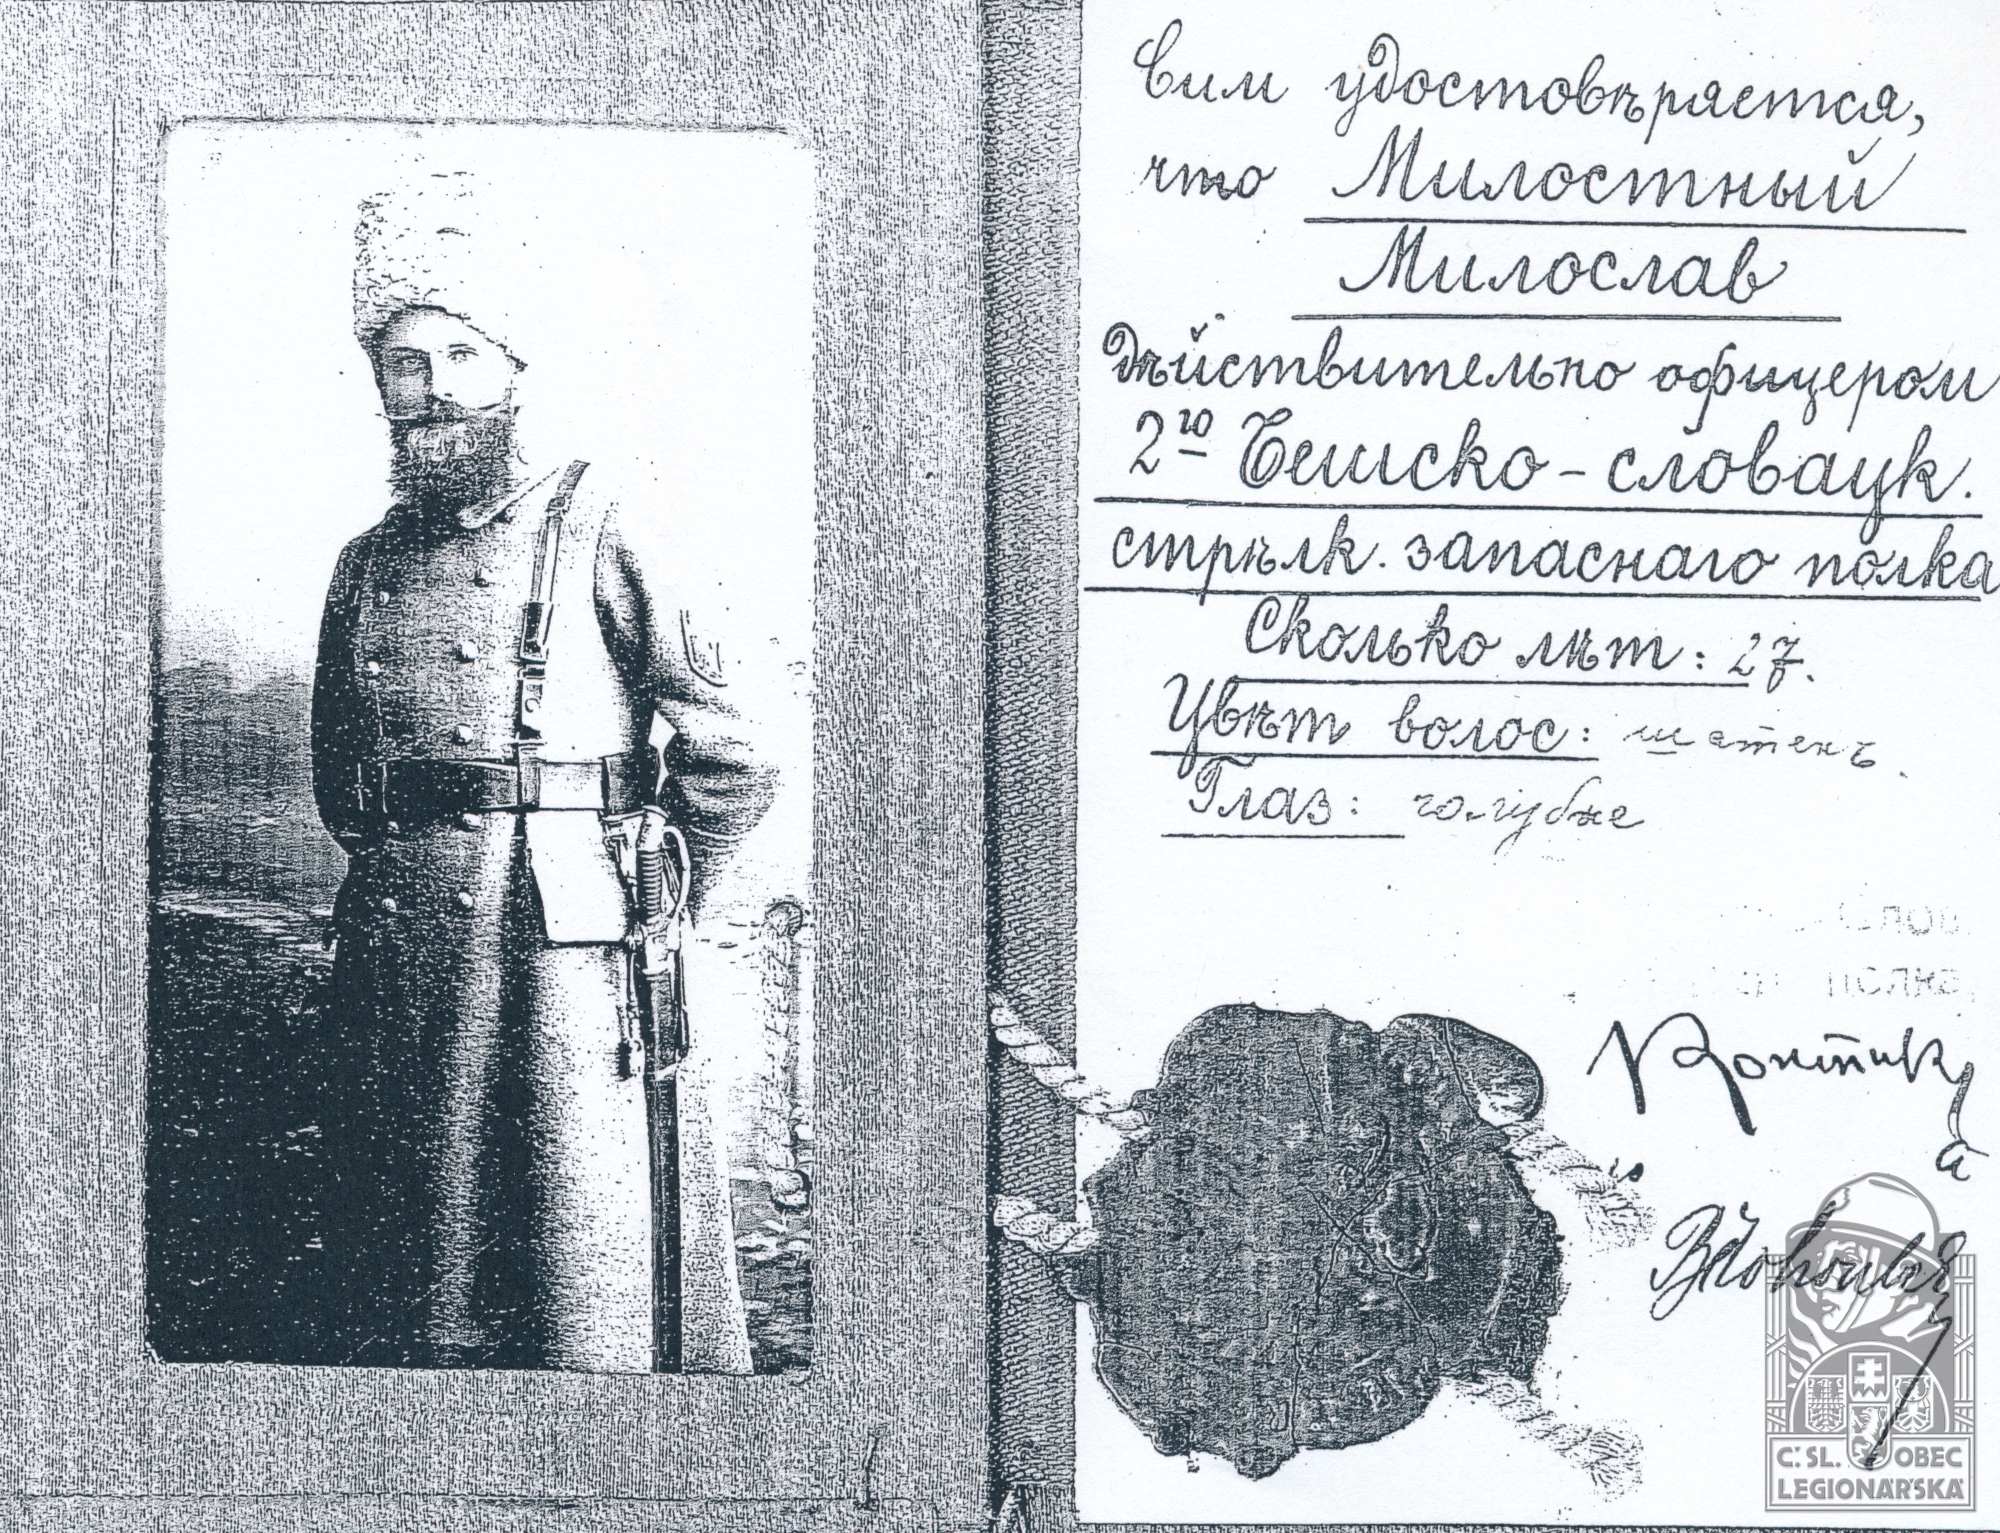 Сим удостовѣряется,
что Милостный
Милослав
дѣйствительно офицером
2го Чешско-словацк.
стрѣлк. запаснаго полка
Сколько лѣт: 27.
Цвѣт волос: шатенъ.
Глаз: голубые
Č. SL. OBEC
LEGIONÁŘSKÁ